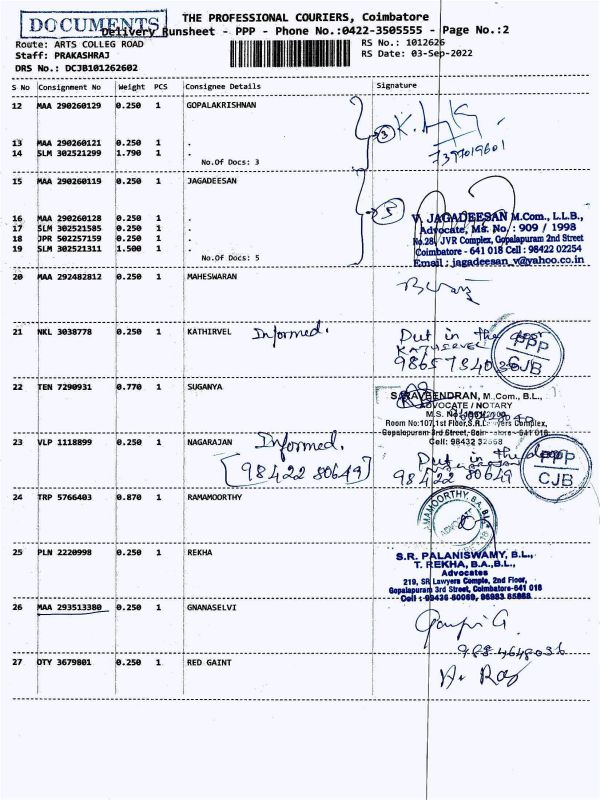 DOCUMENTS
THE PROFESSIONAL COURIERS, Coimbatore
Delivery Runsheet - PPP - Phone No.:0422-3505555 - Page No.:2
Route: ARTS COLLEG ROAD
RS No.: 1012626
Staff: PRAKASHRAJ
RS Date: 03-Sep-2022
DRS No.: DCJB101262602
S No Consignment No Weight PCS Consignee Details Signature
12 MAA 290260129 0.250 1 GOPALAKRISHNAN
3
13 MAA 290260121 0.250 1 .
14 SLM 302521299 1.790 1 .
7397019601
No.Of Docs: 3
15 MAA 290260119 0.250 1 JAGADEESAN
5
16 MAA 290260128 0.250 1 .
17 SLM 302521585 0.250 1 .
18 JPR 502257159 0.250 1 .
19 SLM 302521311 1.500 1 .
No.Of Docs: 5
V. JAGADEESAN M.Com., L.L.B.,
Advocate, Ms. No. : 909 / 1998
No.28, JVR Complex, Gopalapuram 2nd Street
Coimbatore - 641 018 Cell : 98422 02254
Email : jagadeesan_v@yahoo.co.in
20 MAA 292482812 0.250 1 MAHESWARAN
21 NKL 3038778 0.250 1 KATHIRVEL Informed.
Put in the
KATHIRVEL
PPP
CJB
22 TEN 7290931 0.770 1 SUGANYA
ADVOCATE / NOTARY
Room No:107,1st Floor,S.R.Lawyers Complex,
23 VLP 1118899 0.250 1 NAGARAJAN Informed.
[98422 80649]
Put in the
98422 80649
PPP
CJB
24 TRP 5766403 0.870 1 RAMAMOORTHY
25 PLN 2220998 0.250 1 REKHA
S.R. PALANISWAMY, B.L.,
T. REKHA, B.A.,B.L.,
Advocates
219, SR Lawyers Comple, 2nd Floor,
Gopalapuram 3rd Street, Coimbatore-641 018
26 MAA 293513380 0.250 1 GNANASELVI
9884648036
27 OTY 3679801 0.250 1 RED GAINT